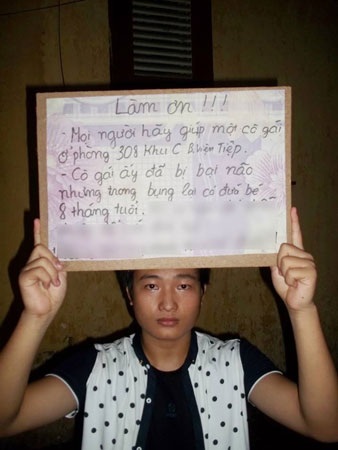 Làm ơn !!!
- Mọi người hãy giúp một cô gái
ở phòng 308 Khu C B.Viện Tiệp.
- Cô gái ấy đã bị bại não
nhưng trong bụng lại có đứa bé
8 tháng tuổi.